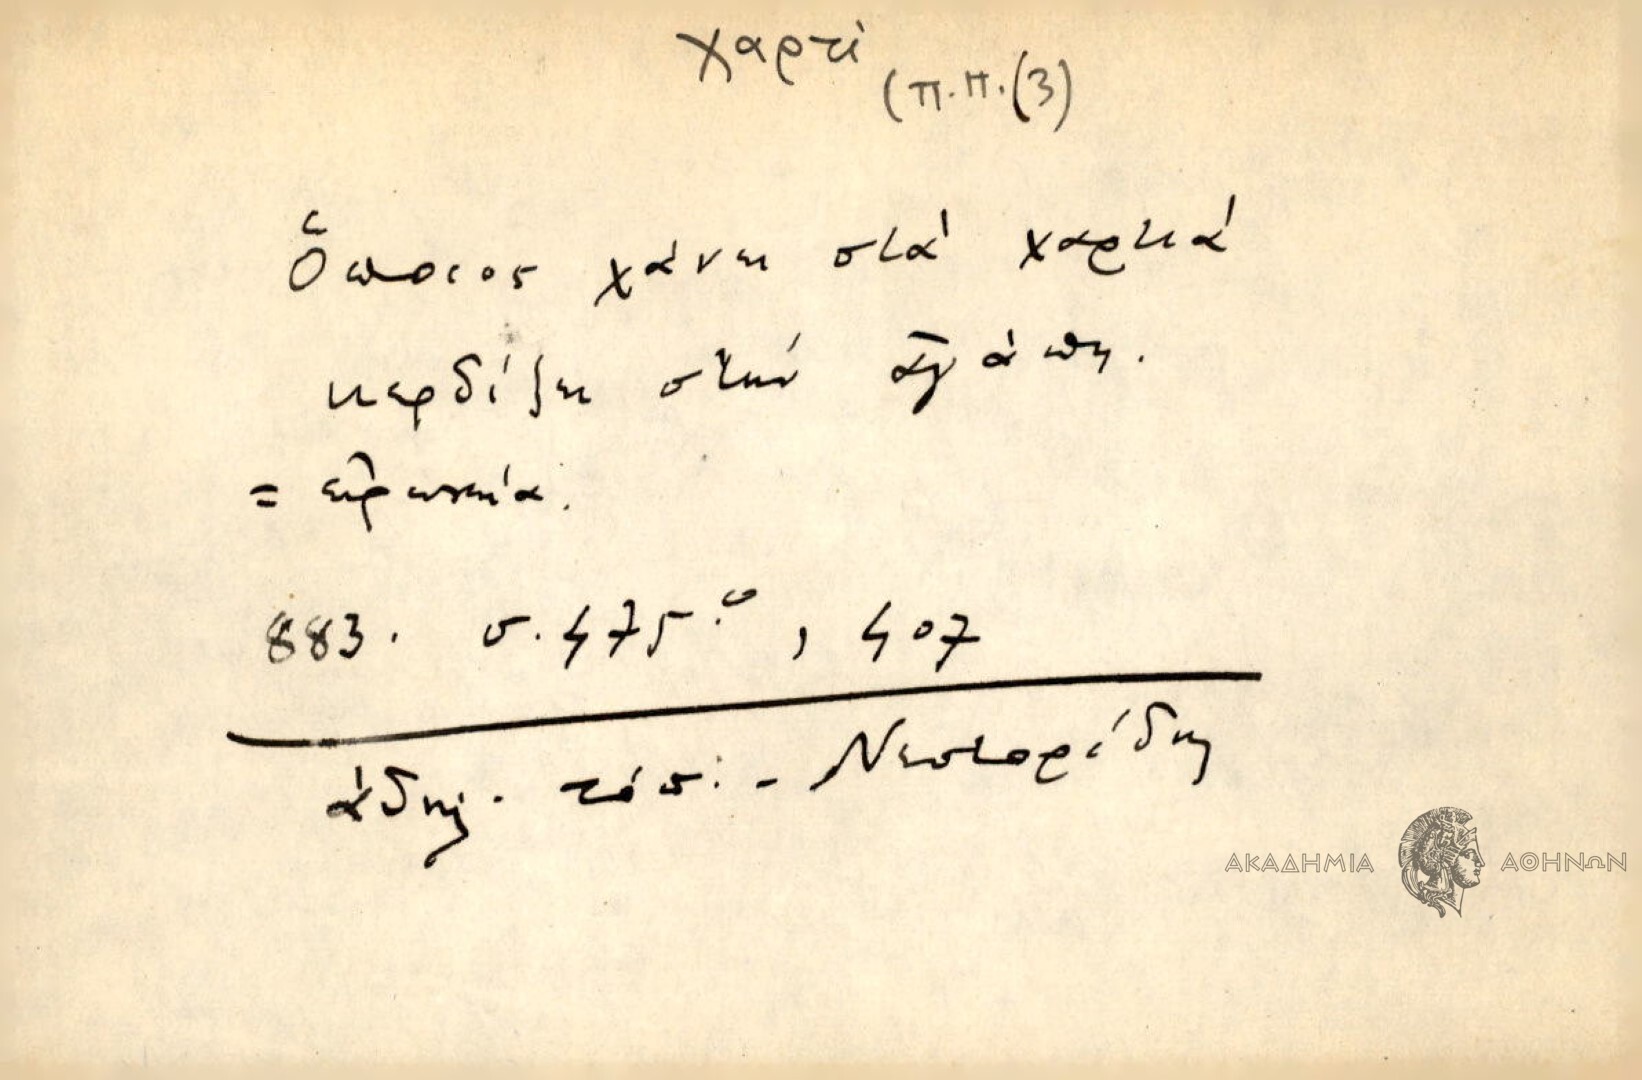 χαρτί
(π.π.(3)
Ὅποιος χάνει στά χαρτιά
κερδίζει στήν ἀγάπη.
= εἰρωνεία.
883. σ. 475, 407
ἀδήλ. τόπ. - Νεστορίδη
ΑΚΑΔΗΜΙΑ ΑΘΗΝΩΝ